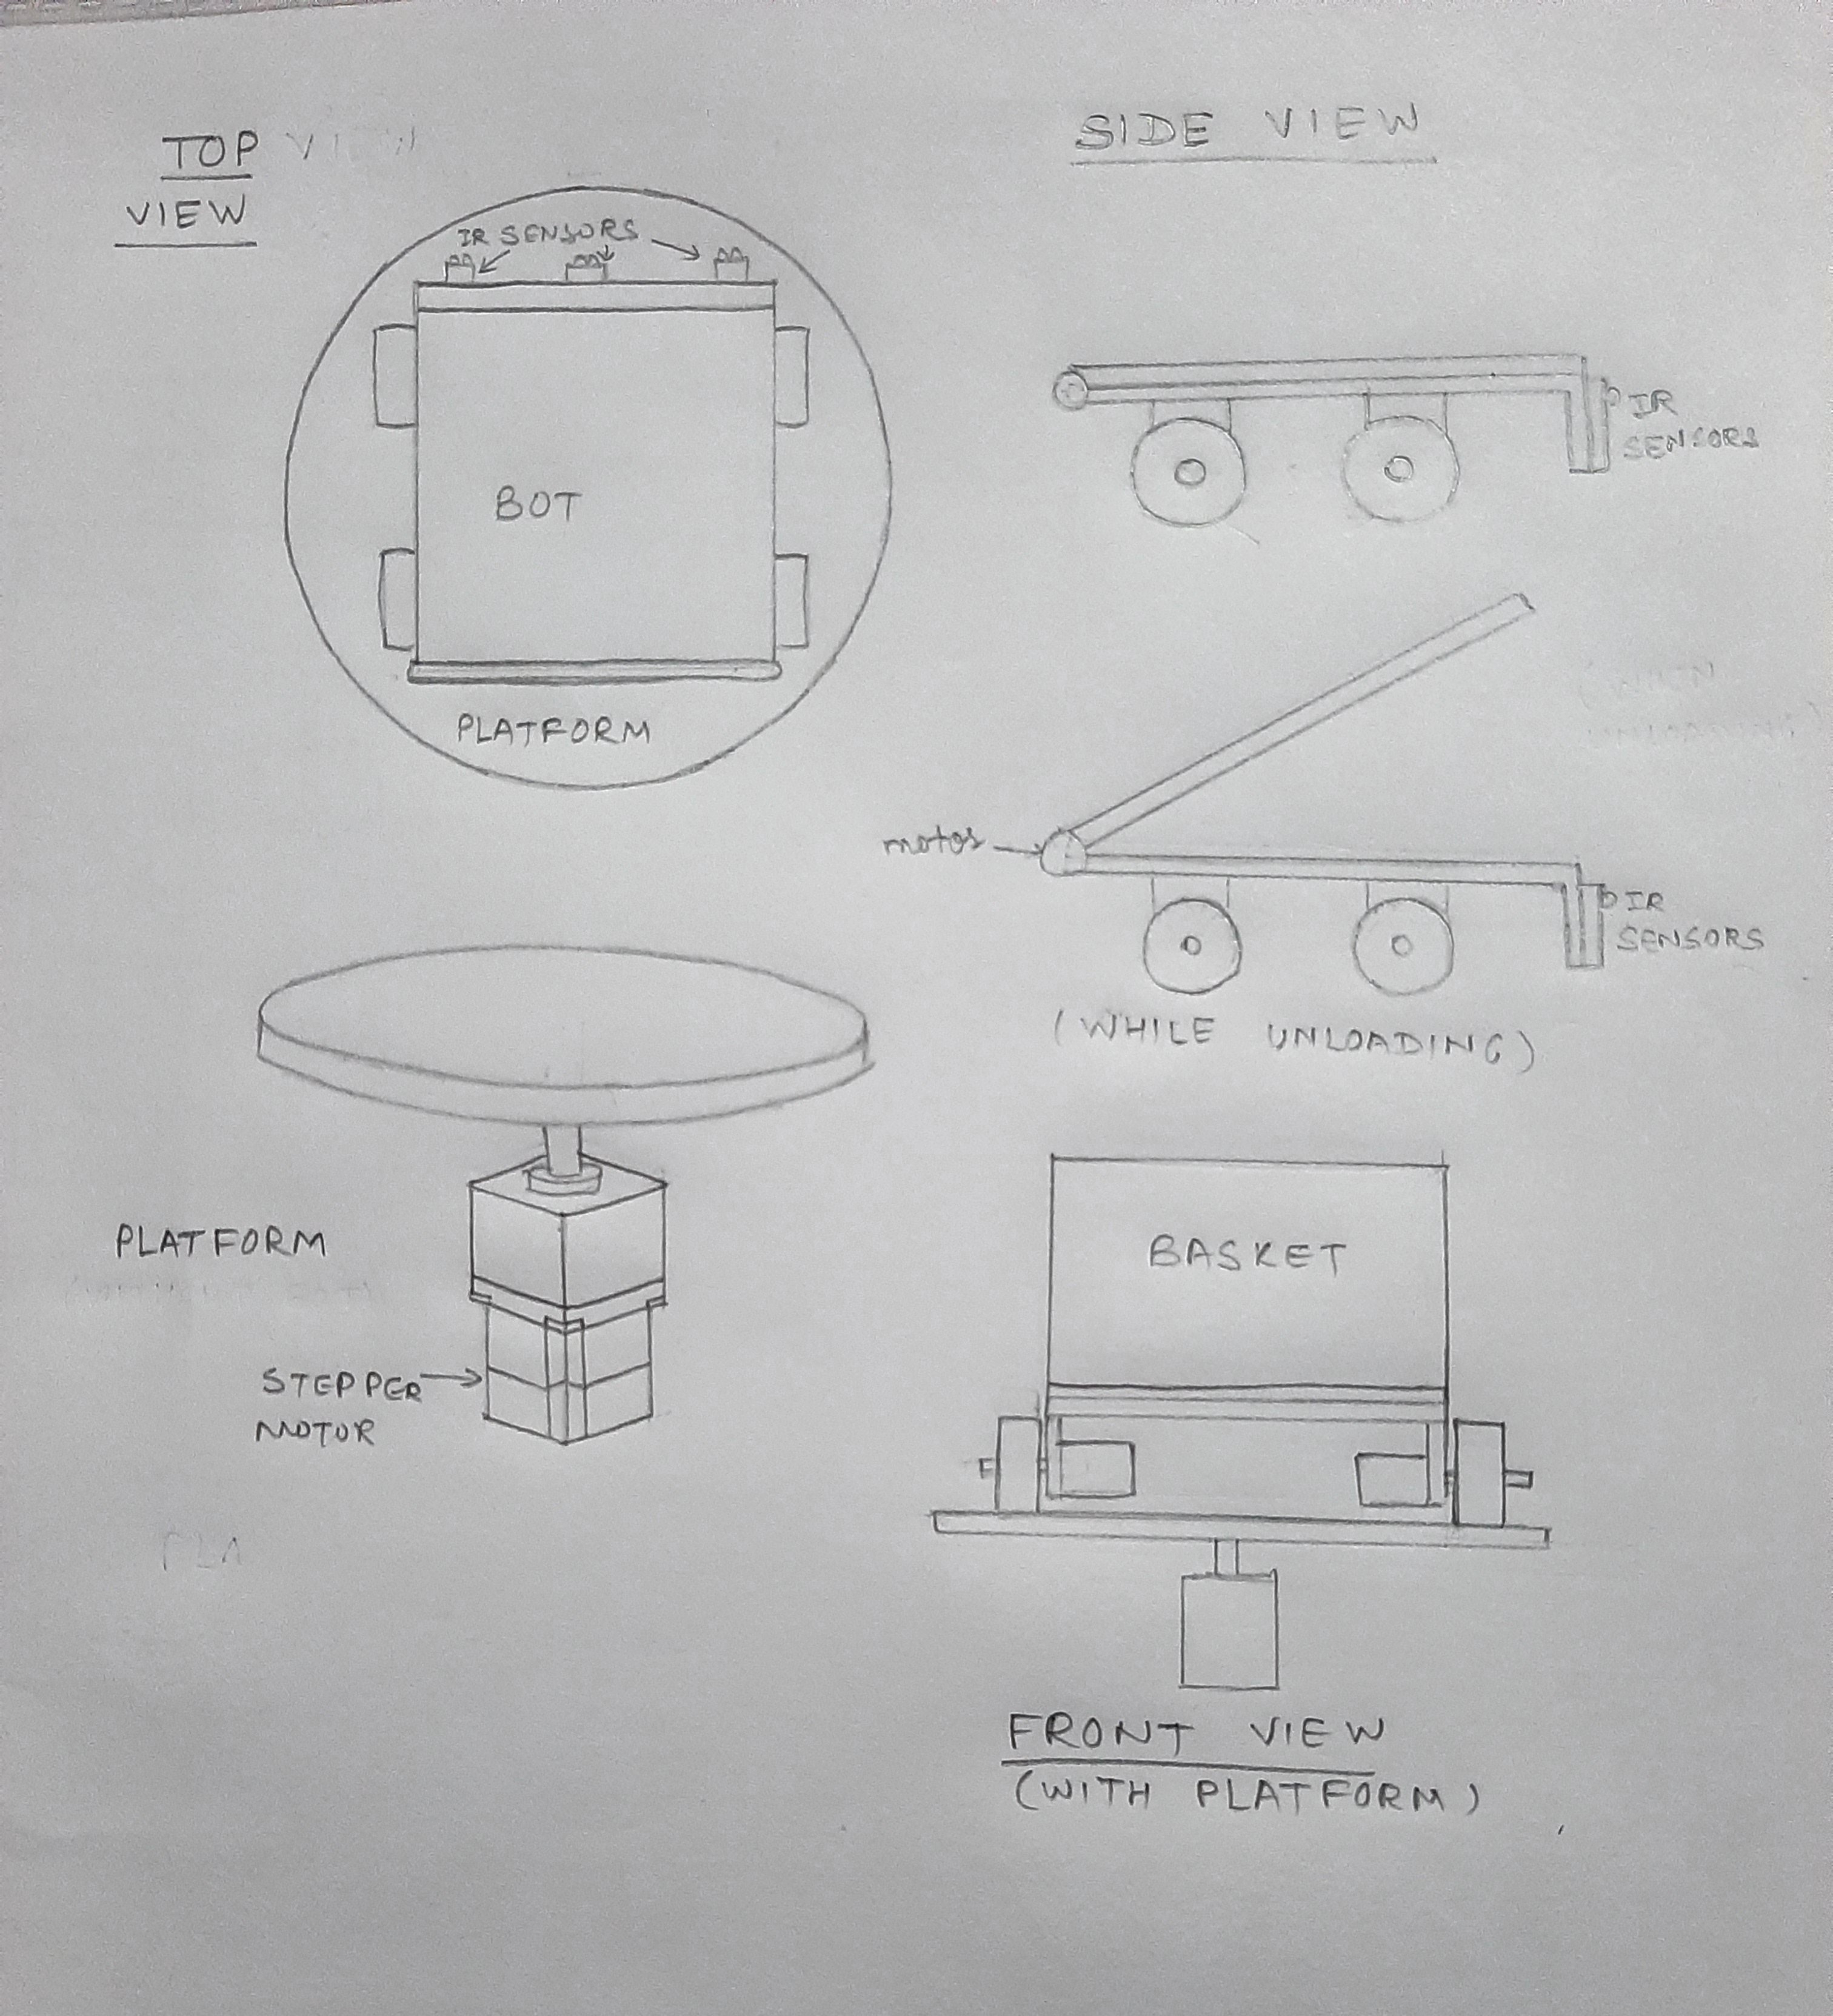 TOP
VIEW
IR SENSORS
BOT
PLATFORM
SIDE VIEW
IR
SENSORS
motor
IR
SENSORS
(WHILE UNLOADING)
PLATFORM
STEPPER
MOTOR
BASKET
FRONT VIEW
(WITH PLATFORM)